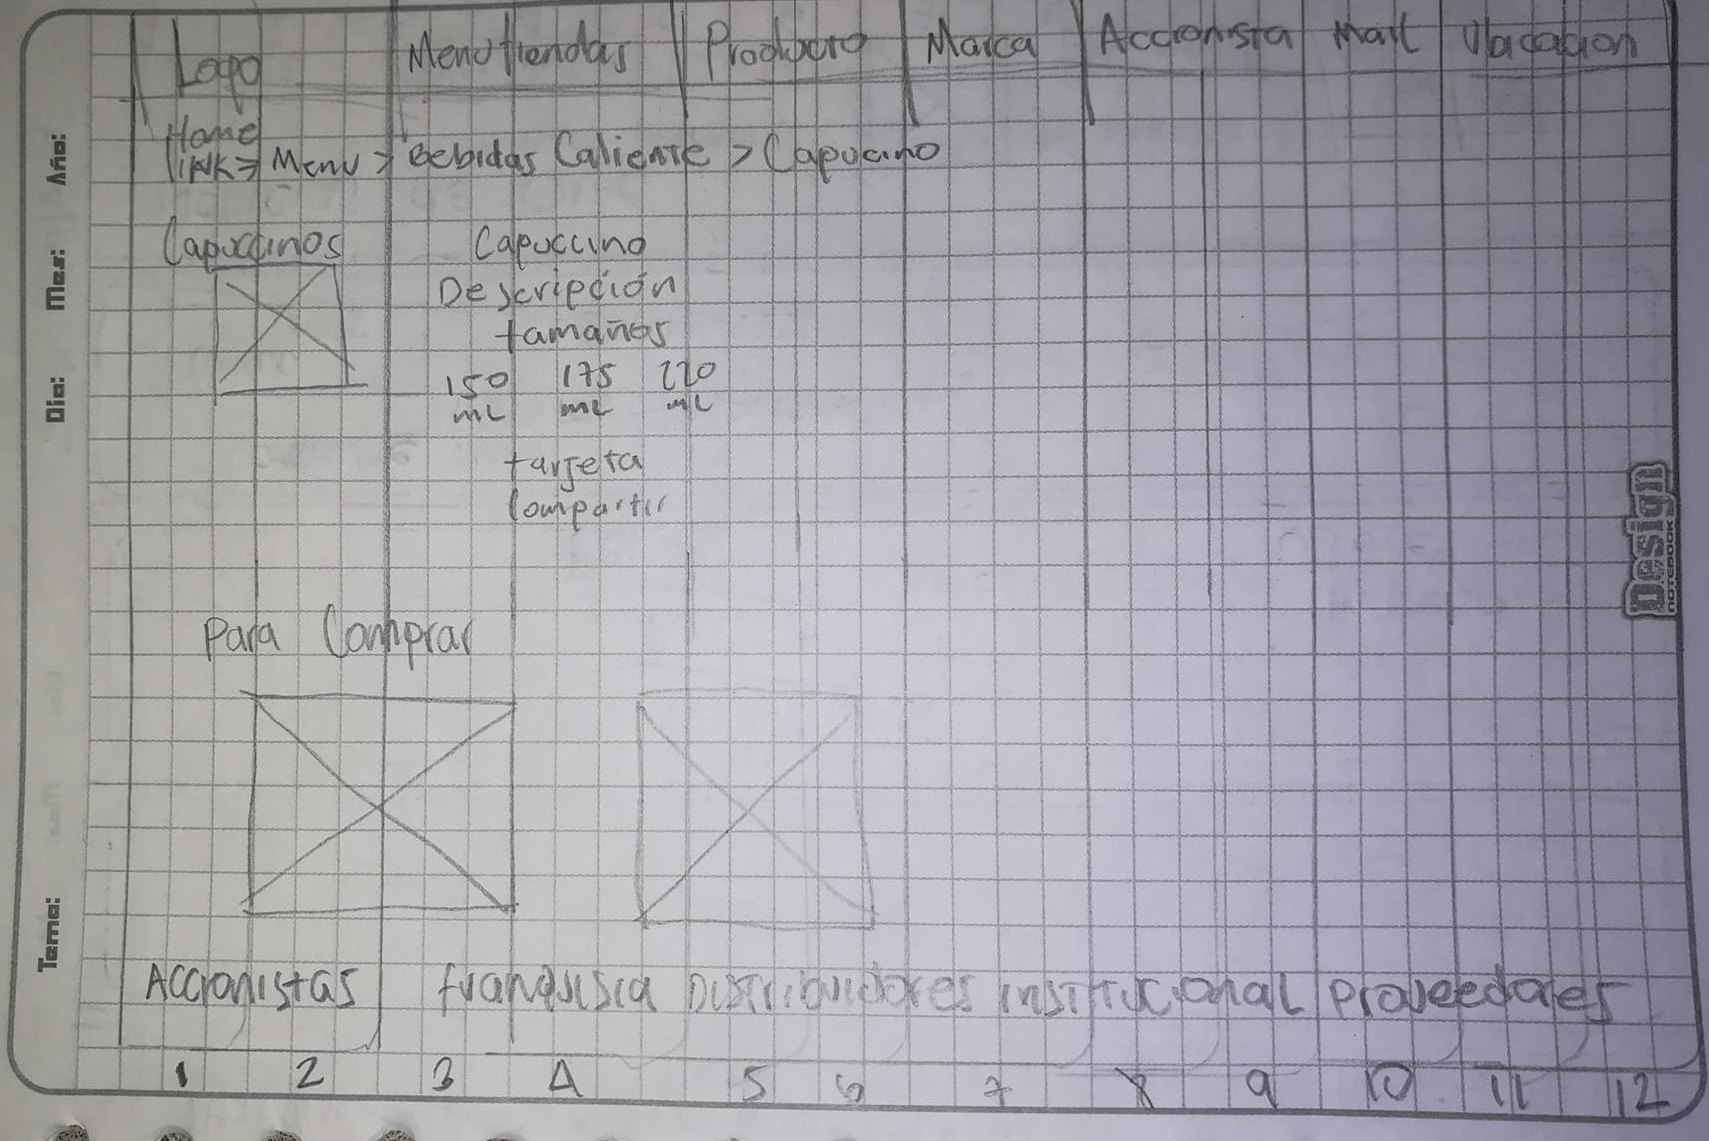 Logo Menu tiendas Producto Marca Accionista Mail Ubacacion
Home
link > Menu > Bebidas Caliente > Capucino
Capuccinos Capuccino
Descripción
tamaños
150 175 220
mL mL mL
tarjeta
Compartir
Para Comprar
Accionistas franquisia Distribuidores institucional proveedores
1 2 3 4 5 6 7 8 9 10 11 12
Año:
Mes:
Dia:
Tema:
Design
NOTEBOOK